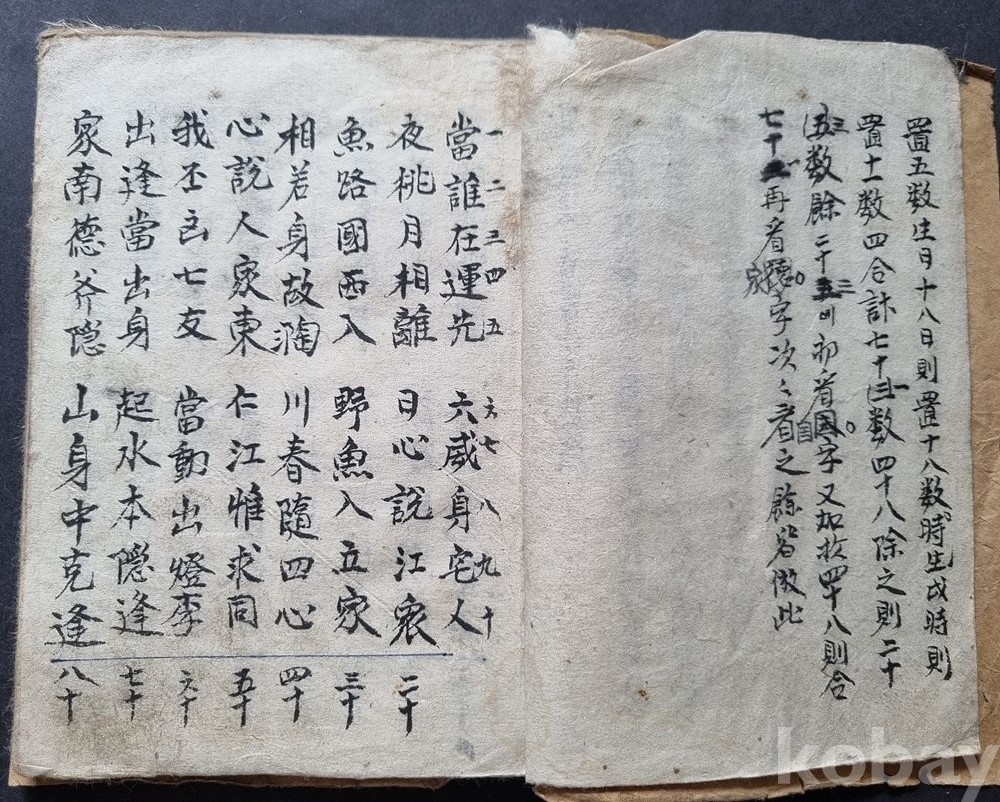 置五数生日十八日則置十八数時生戌時則
置十一数四合計七十三数四十八除之則二十
五数餘二十三初看国字又加枚四十八則合
七十再看德字次々看之餘皆倣此
一二三四五六七八九十
當誰在運先六威身宅人
夜桃月相離日心說江衆二十
魚路國西入野魚入立家三十
相若身故澗川春隨四心四十
心說人家東仁江惟求同五十
我丕良七友當動出燈李六十
出逢當出身起水本隠逢七十
家南德斧隠山身中克逢八十
kobay